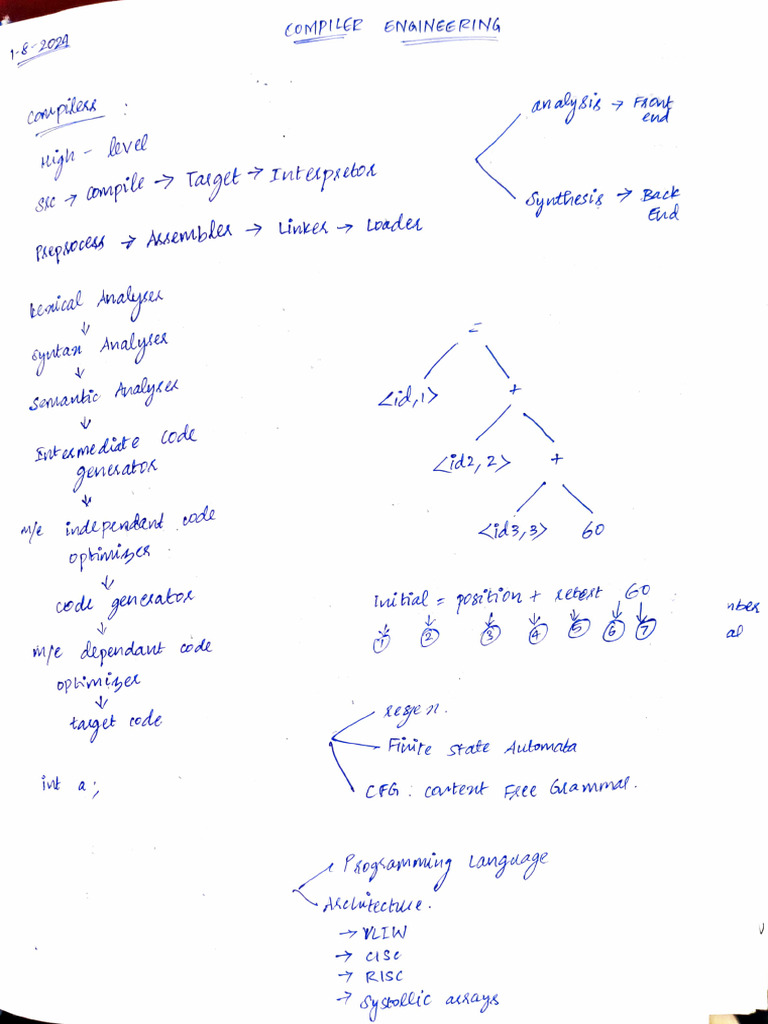 COMPILER ENGINEERING
1-8-2024
Compilers :
High - level
Src → Compile → Target → Interpretor
Preprocess → Assembler → Linker → Loader
analysis → Front
end
Synthesis → Back
End
Lexical Analyser
↓
Syntax Analyser
↓
Semantic Analyser
↓
Intermediate code
generator
↓
m/c independant code
optimizer
↓
code generator
↓
m/c dependant code
optimizer
↓
target code
int a;
=
<id,1> +
<id2, 2> +
<id3,3> 60
initial = position + 60
↓ ↓ ↓ ↓ ↓ ↓ ↓
① ② ③ ④ ⑤ ⑥ ⑦
nber
al
regex.
Finite State Automata
CFG : context Free Grammar.
Programming Language
Architecture.
→ VLIW
→ CISC
→ RISC
→ Systollic arrays